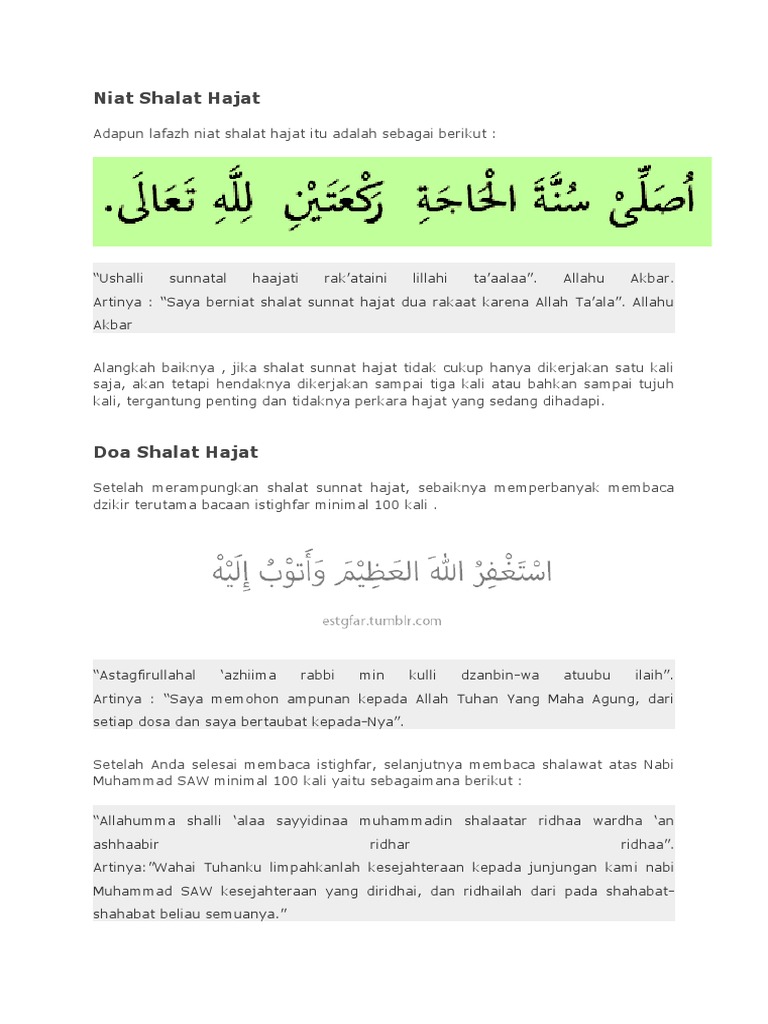 Niat Shalat Hajat
Adapun lafazh niat shalat hajat itu adalah sebagai berikut :
اُصَلِّيْ سُنَّةَ الْحَاجَةِ رَكْعَتَيْنِ لِلَّهِ تَعَالَى.
“Ushalli sunnatal haajati rak’ataini lillahi ta’aalaa”. Allahu Akbar.
Artinya : “Saya berniat shalat sunnat hajat dua rakaat karena Allah Ta’ala”. Allahu
Akbar
Alangkah baiknya , jika shalat sunnat hajat tidak cukup hanya dikerjakan satu kali
saja, akan tetapi hendaknya dikerjakan sampai tiga kali atau bahkan sampai tujuh
kali, tergantung penting dan tidaknya perkara hajat yang sedang dihadapi.
Doa Shalat Hajat
Setelah merampungkan shalat sunnat hajat, sebaiknya memperbanyak membaca
dzikir terutama bacaan istighfar minimal 100 kali .
اسْتَغْفِرُ اللهَ العَظِيْمَ وَأَتوْبُ إِلَيْهْ
estgfar.tumblr.com
“Astagfirullahal ‘azhiima rabbi min kulli dzanbin-wa atuubu ilaih”.
Artinya : “Saya memohon ampunan kepada Allah Tuhan Yang Maha Agung, dari
setiap dosa dan saya bertaubat kepada-Nya”.
Setelah Anda selesai membaca istighfar, selanjutnya membaca shalawat atas Nabi
Muhammad SAW minimal 100 kali yaitu sebagaimana berikut :
“Allahumma shalli ‘alaa sayyidinaa muhammadin shalaatar ridhaa wardha ‘an
ashhaabir ridhar ridhaa”.
Artinya:”Wahai Tuhanku limpahkanlah kesejahteraan kepada junjungan kami nabi
Muhammad SAW kesejahteraan yang diridhai, dan ridhailah dari pada shahabat-
shahabat beliau semuanya.”